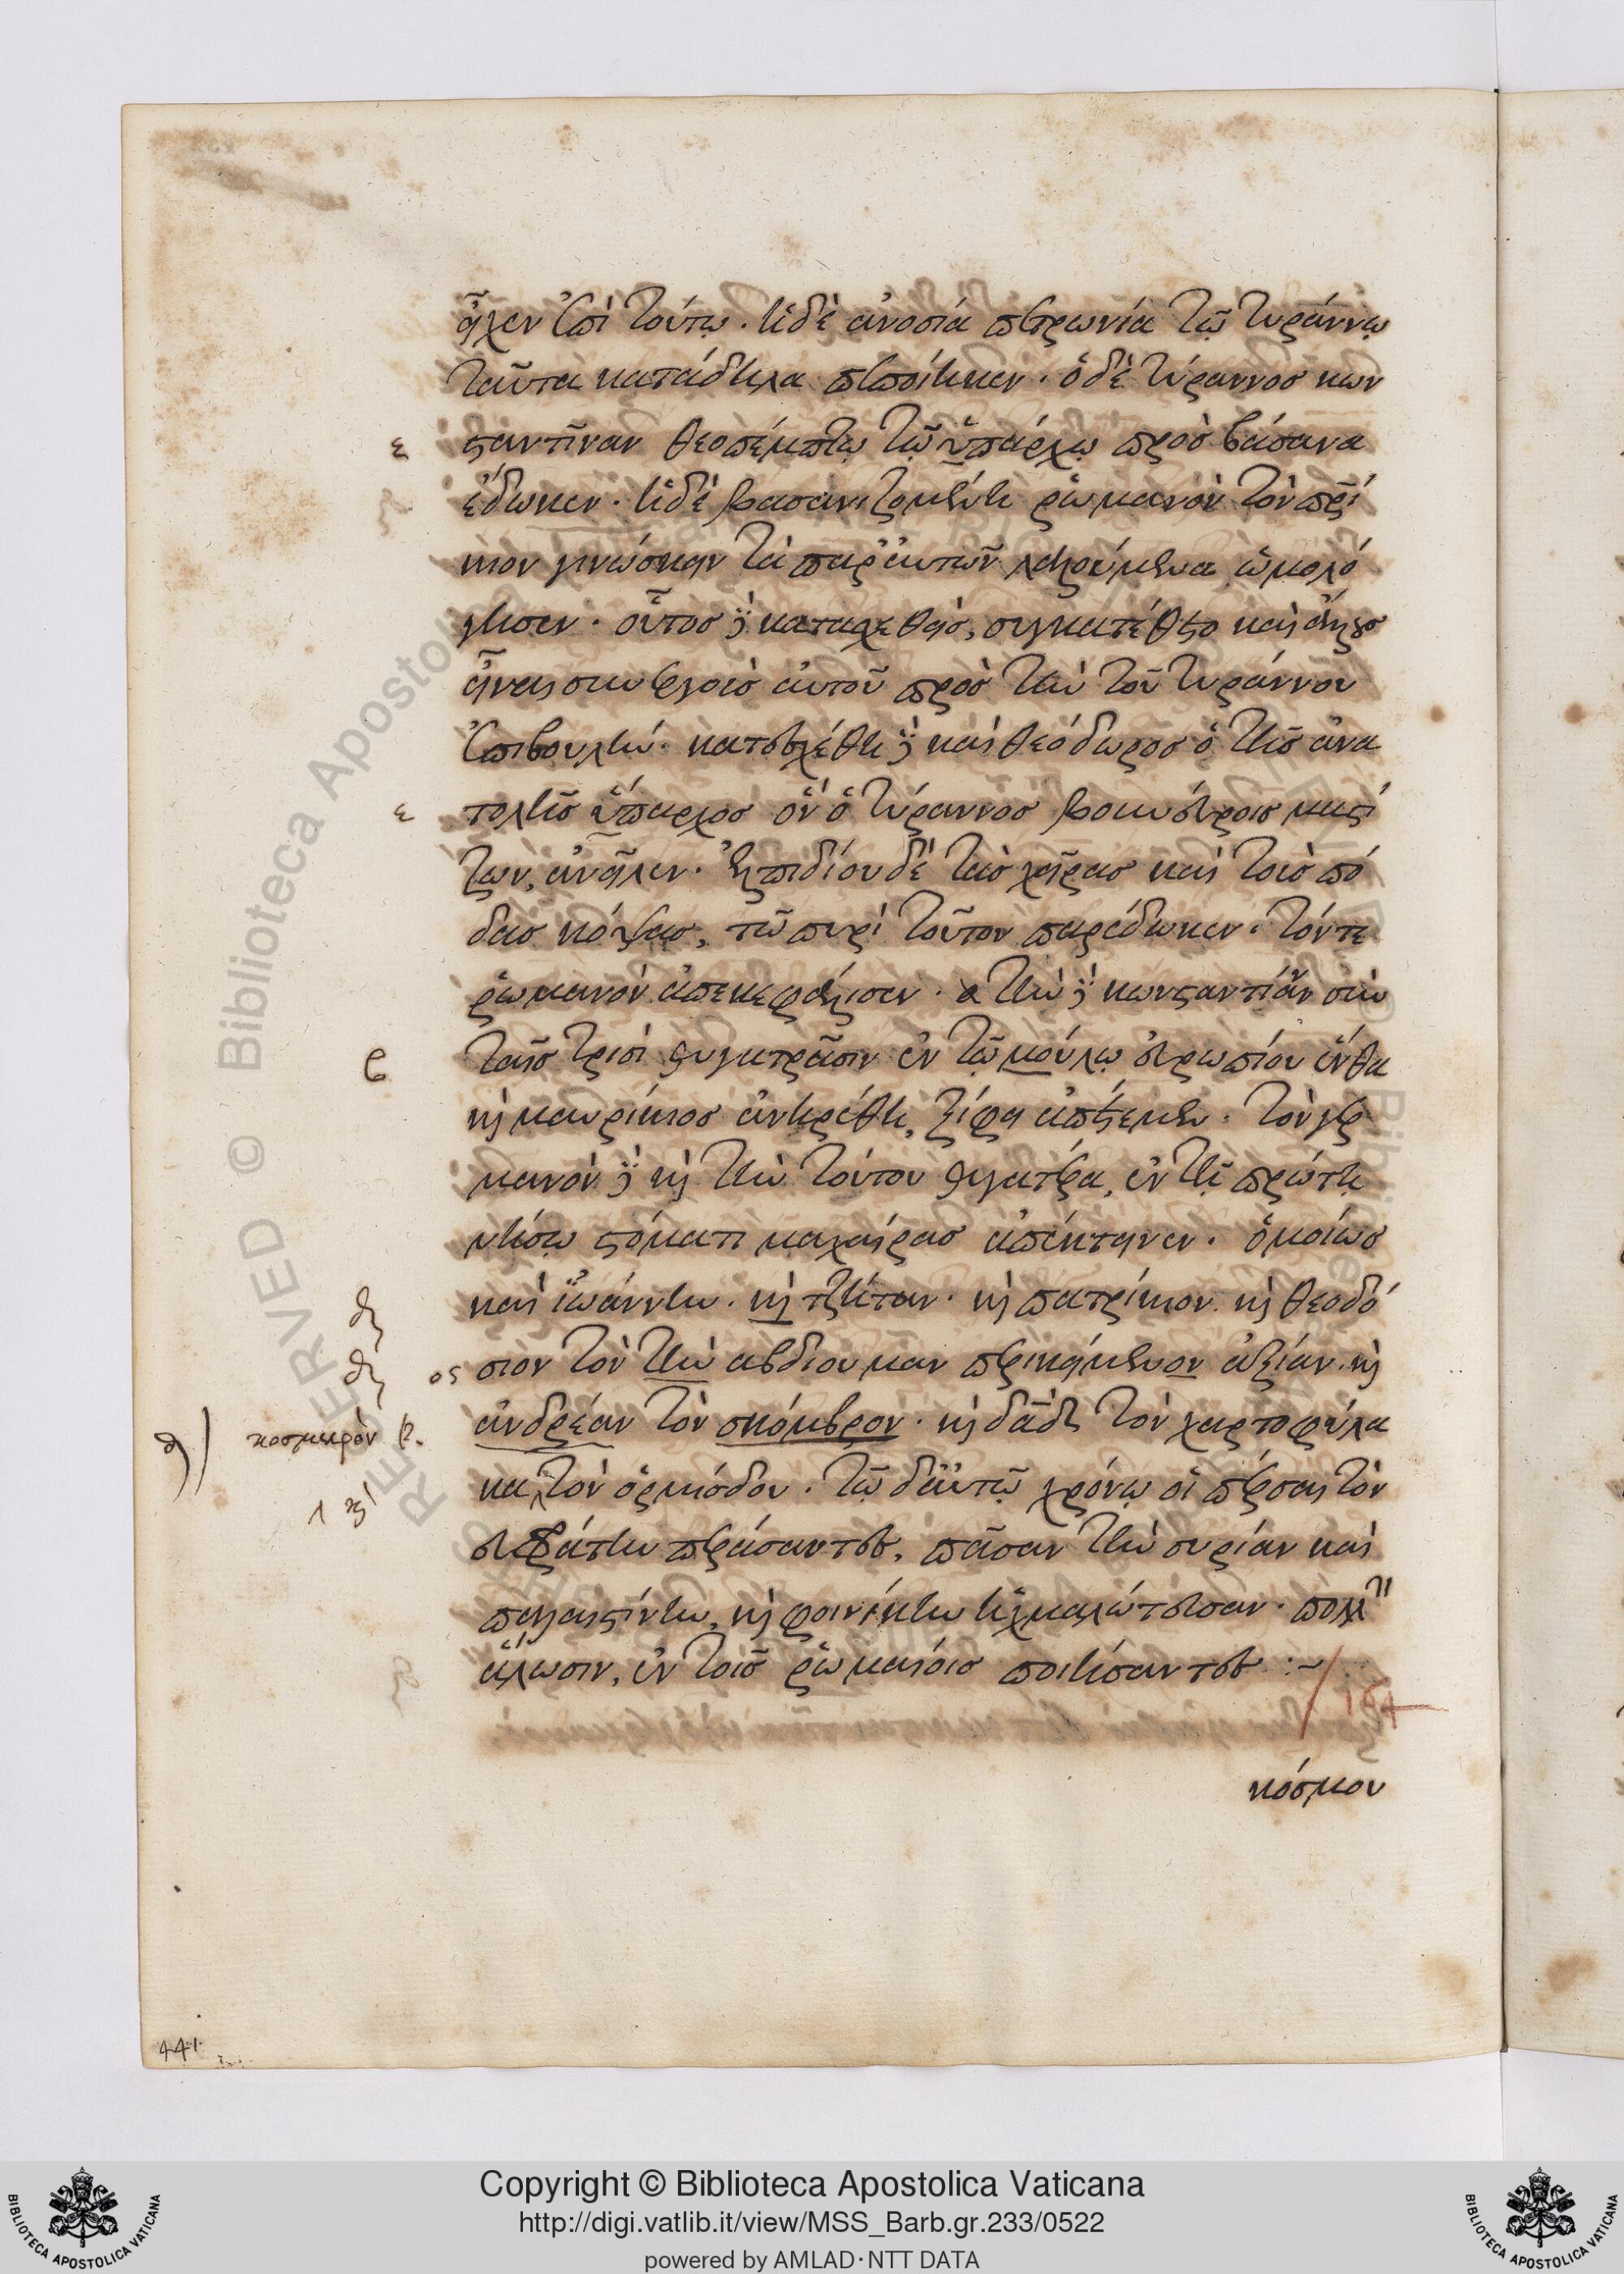 εἶχεν ἐπὶ τούτῳ. ἡ δὲ ἀνοσία πετρωνία τῷ τυράννῳ
ταῦτα κατάδηλα πεποίηκεν. ὁ δὲ τύραννος κων
ε σταντῖναν θεοπέμπτῳ τῷ ὑπάρχῳ πρὸς βάσανα
ἔδωκεν. ἡ δὲ βασανιζομένη ῥωμανὸν τὸν πατρί
κιον γινώσκειν τὰ παρ' αὐτῶν λαλούμενα ὡμολό
γησεν. οὗτος δὲ κατασχεθεὶς, συγκατέθετο καὶ ἄλλους
εἶναι συμβούλους αὐτοῦ πρὸς τὴν τοῦ τυράννου
ἐπιβουλήν. κατεσχέθη δὲ καὶ θεόδωρος ὁ τῆς ἀνα
ε τολῆς ὕπαρχος ὃν ὁ τύραννος βοκυνεύροις μαστί
ζων, ἀνεῖλεν. ἐλπιδίου δὲ τὰς χεῖρας καὶ τοὺς πό
δας κόψας, τῷ πυρὶ τοῦτον παρέδωκεν. τόν τε
ῥωμανὸν ἀπεκεφάλισεν. τὴν δὲ κωνσταντῖναν σὺν
ταῖς τρισὶ θυγατράσιν ἐν τῷ μούλῳ εὐτροπίου ἔνθα
καὶ μαυρίκιος ἀνῃρέθη, ξίφει ἀπέτεμεν. τὸν γερ
μανὸν δὲ καὶ τὴν τούτου θυγατέρα, ἐν τῇ πρώτῃ
νήσῳ στόματι μαχαίρας ἀπέκτεινεν. ὁμοίως
καὶ ἰωάννην. καὶ τζίταν. καὶ πατρίκιον. καὶ θεοδό
ος σιον τὸν τὴν αβδιουμαν περικείμενον ἀξίαν. καὶ
ἀνδρέαν τὸν σκόμβρον. καὶ δαδ τὸν χαρτοφύλα
κοσμηρὸν
κα τὸν ὁρμίσδου. τῷ δ' αὐτῷ χρόνῳ οἱ πέρσαι τὸν
εὐφράτην περάσαντες, πᾶσαν τὴν συρίαν καὶ
παλαιστίνην, καὶ φοινίκην ᾐχμαλώτευσαν. πολλὴν
ἅλωσιν, ἐν τοῖς ῥωμαίοις ποιήσαντες :~
164
κόσμου
441
RESERVED © Biblioteca Apostolica
Copyright © Biblioteca Apostolica Vaticana
http://digi.vatlib.it/view/MSS_Barb.gr.233/0522
powered by AMLAD·NTT DATA
BIBLIOTECA APOSTOLICA VATICANA
BIBLIOTECA APOSTOLICA VATICANA